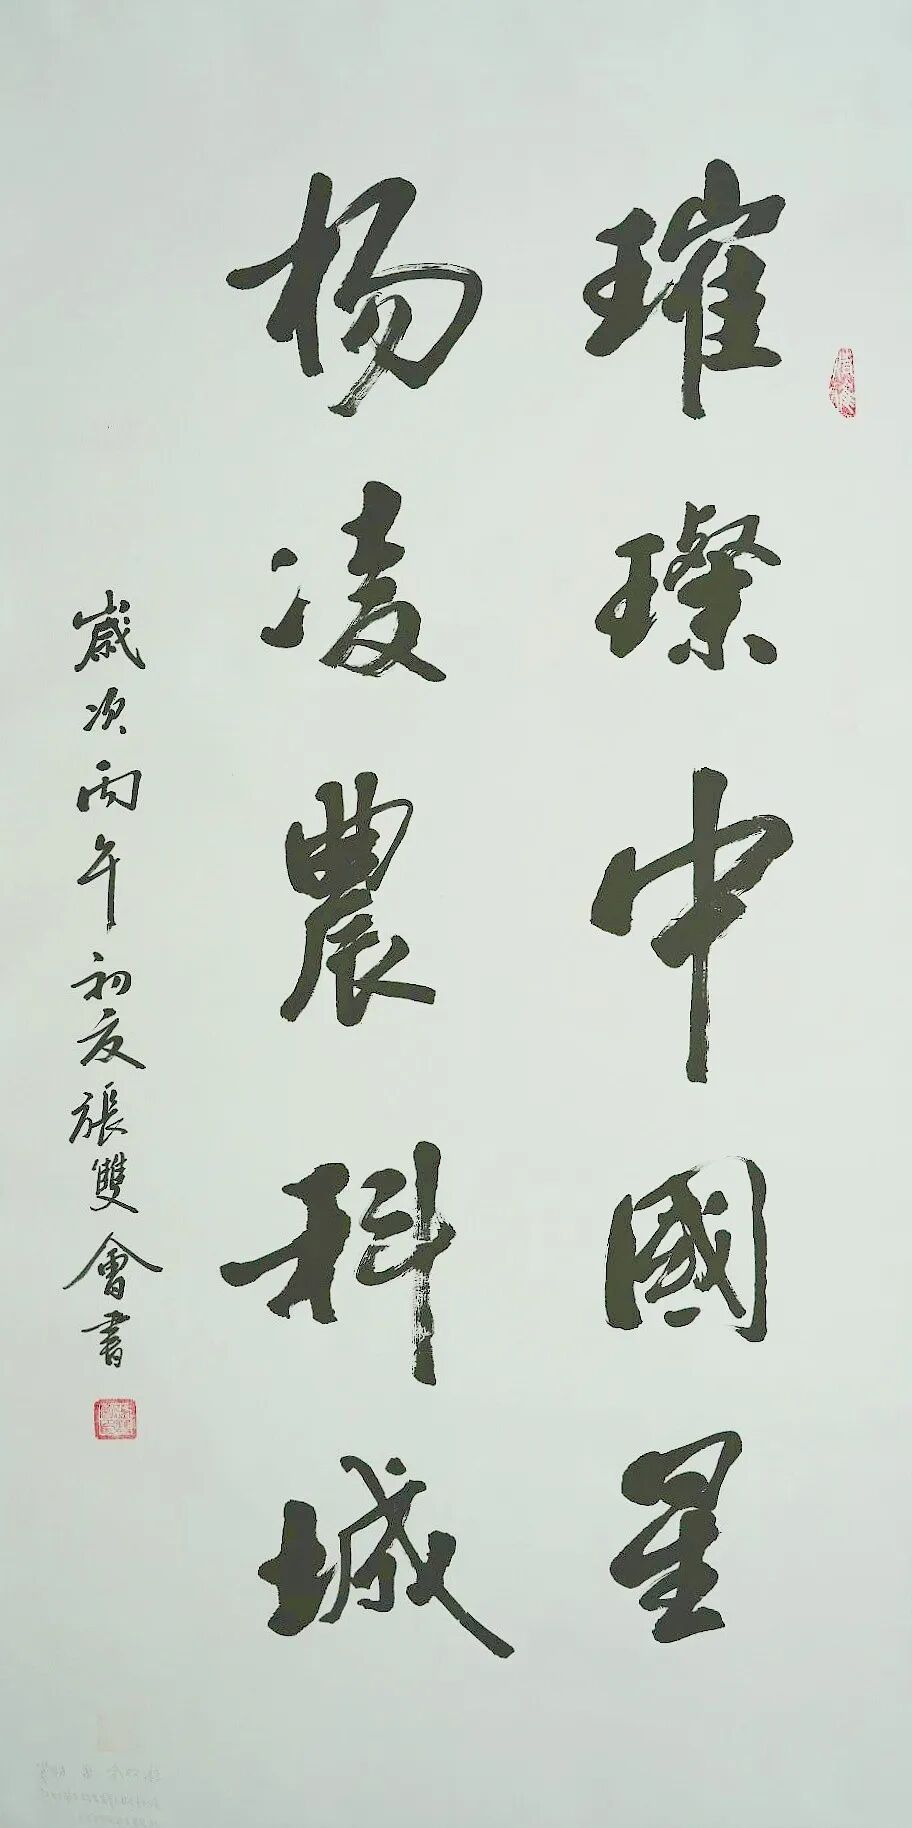 璀璨中國星
杨凌農科城
歲次丙午初夏張雙會書